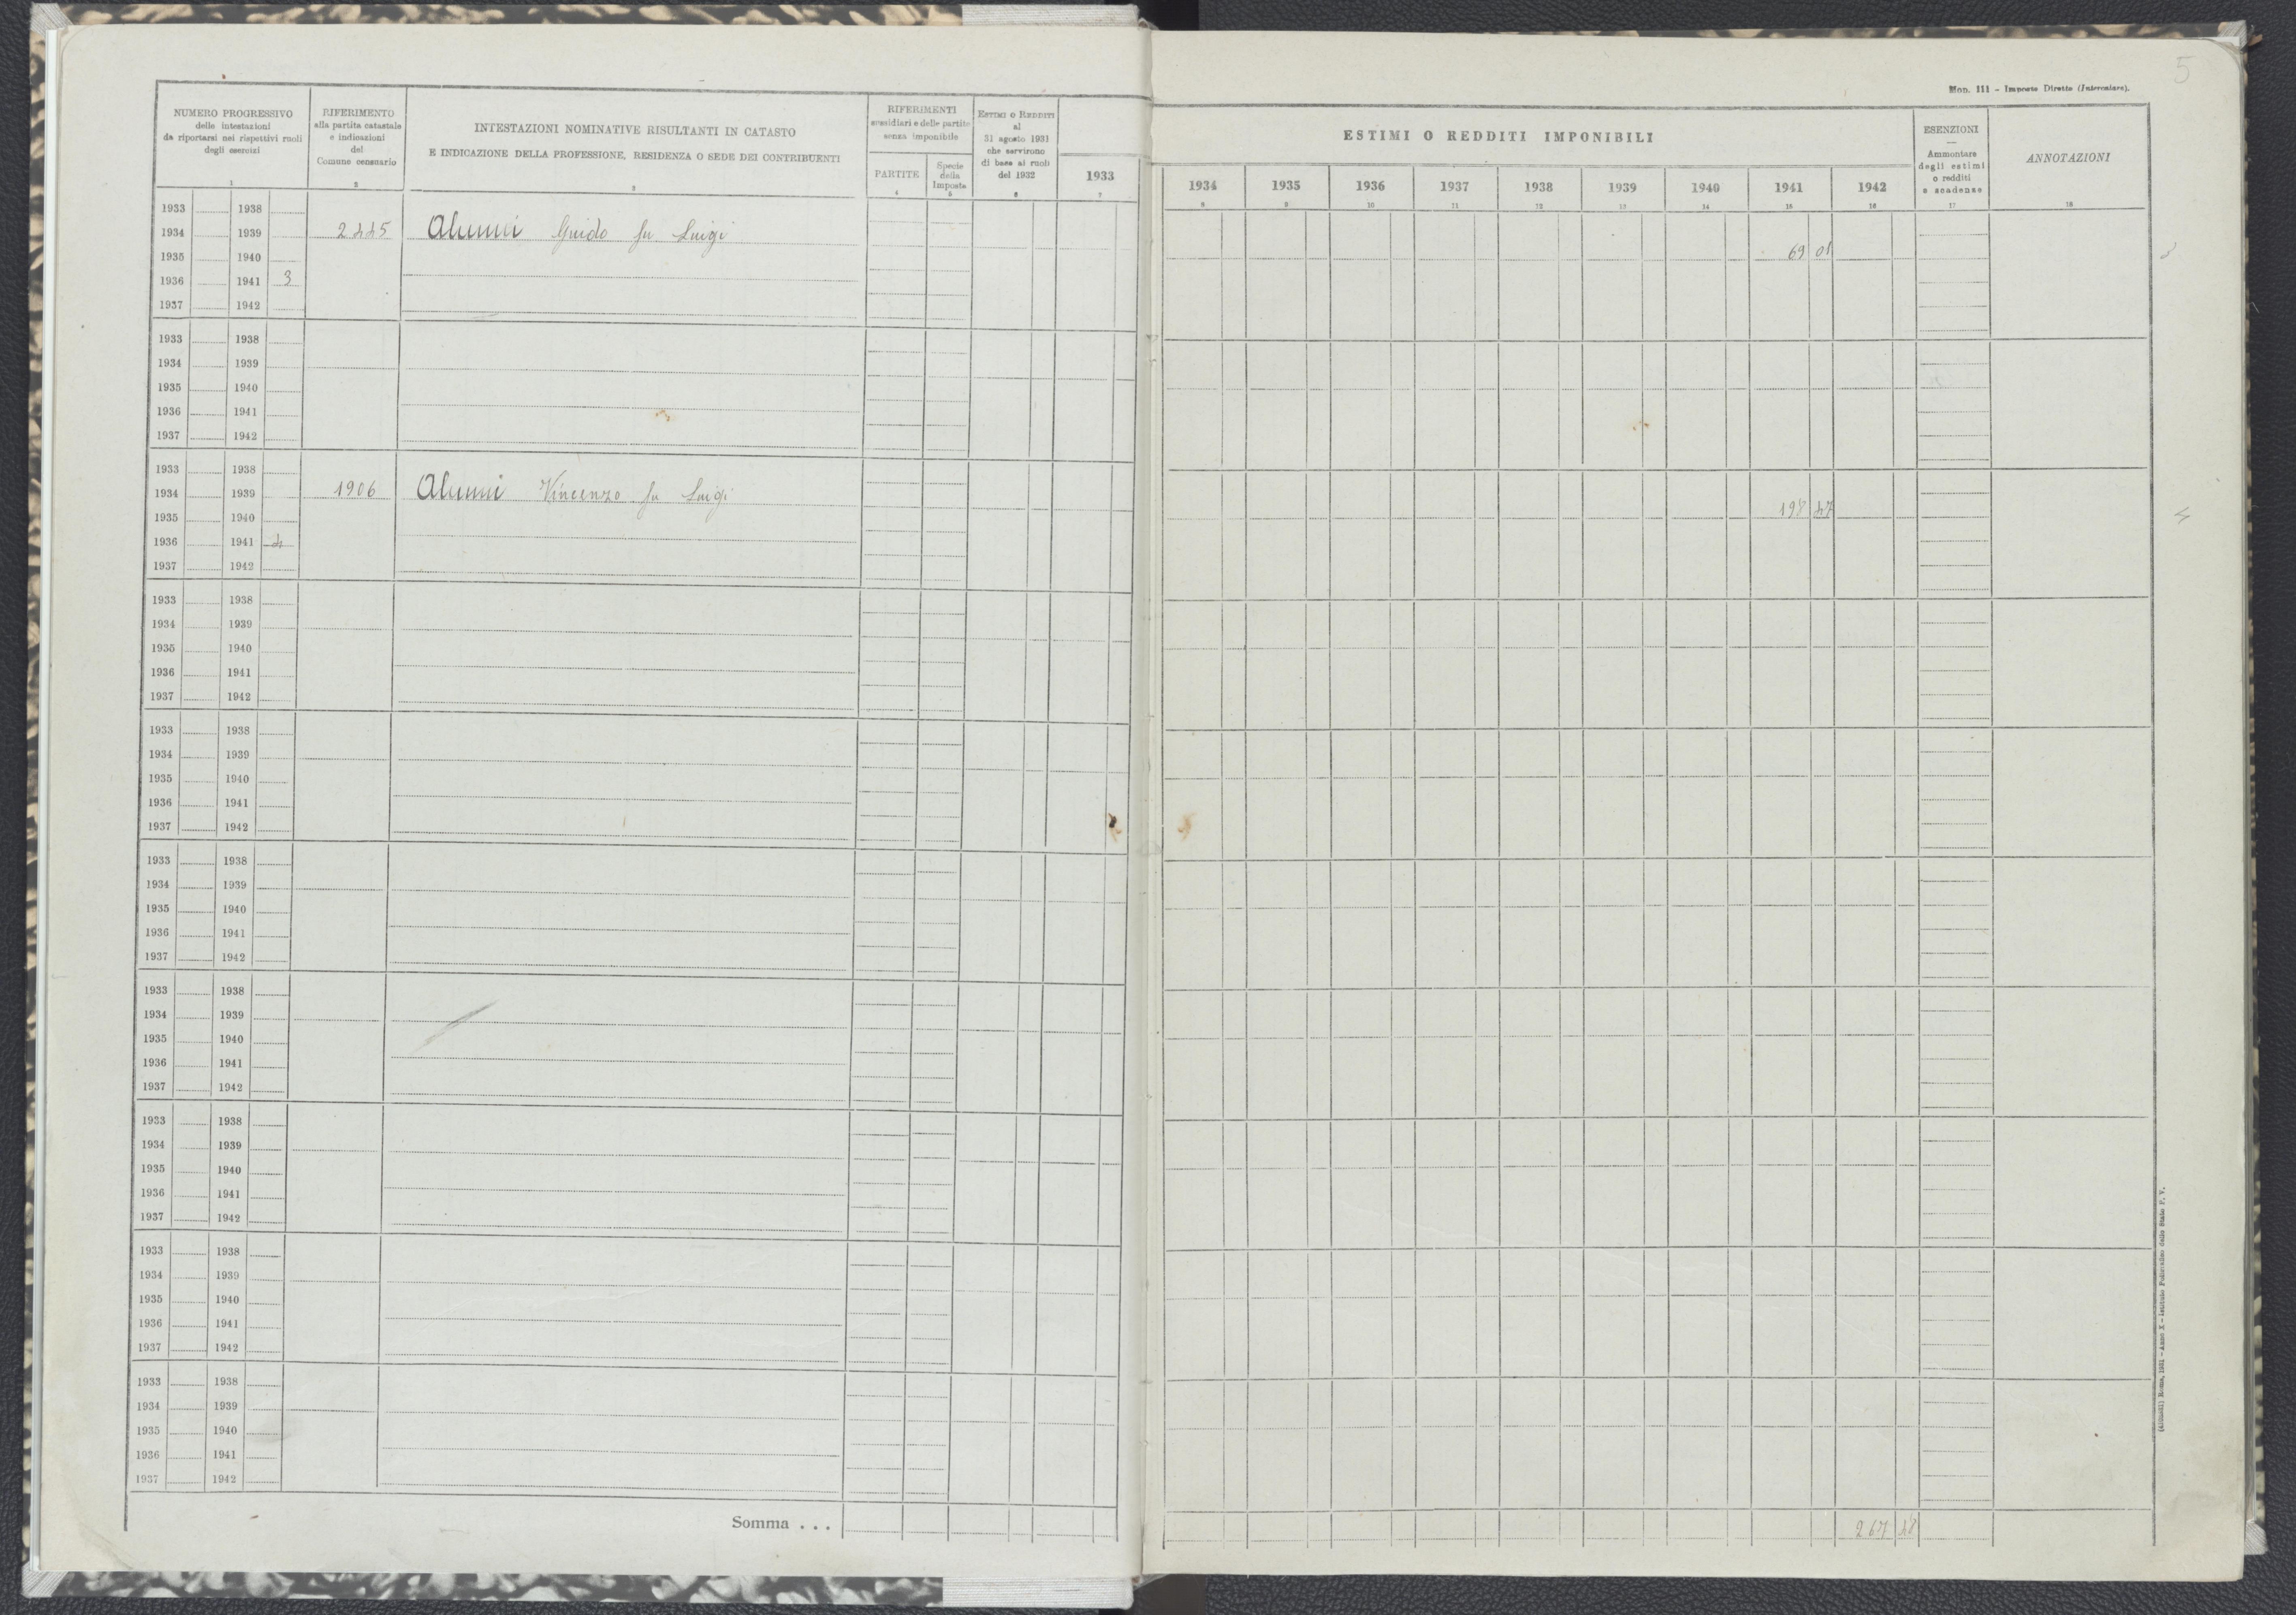 5
Mod. 111 - Imposte Dirette (Intercalare).
NUMERO PROGRESSIVO
delle intestazioni
da riportarsi nei rispettivi ruoli
degli esercizi
1
RIFERIMENTO
alla partita catastale
e indicazioni
del
Comune censuario
2
INTESTAZIONI NOMINATIVE RISULTANTI IN CATASTO
E INDICAZIONE DELLA PROFESSIONE, RESIDENZA O SEDE DEI CONTRIBUENTI
3
RIFERIMENTI
sussidiari e delle partite
senza imponibile
PARTITE
4
Specie
della
Imposta
5
ESTIMI O REDDITI
al
31 agosto 1931
che servirono
di base ai ruoli
del 1932
6
ESTIMI O REDDITI IMPONIBILI
1933 1934 1935 1936 1937 1938 1939 1940 1941 1942
7 8 9 10 11 12 13 14 15 16
ESENZIONI
Ammontare
degli estimi
o redditi
e scadenze
17
ANNOTAZIONI
18
1933 1938
1934 1939 2445 Alunni Guido fu Luigi 69 01
1935 1940
1936 1941 3
1937 1942
1933 1938
1934 1939
1935 1940
1936 1941
1937 1942
1933 1938
1934 1939 1906 Alunni Vincenzo fu Luigi 198 47
1935 1940
1936 1941 4
1937 1942
1933 1938
1934 1939
1935 1940
1936 1941
1937 1942
1933 1938
1934 1939
1935 1940
1936 1941
1937 1942
1933 1938
1934 1939
1935 1940
1936 1941
1937 1942
1933 1938
1934 1939
1935 1940
1936 1941
1937 1942
1933 1938
1934 1939
1935 1940
1936 1941
1937 1942
1933 1938
1934 1939
1935 1940
1936 1941
1937 1942
1933 1938
1934 1939
1935 1940
1936 1941
1937 1942
Somma . . . 267 48
Roma, 1931 - Anno X - Istituto Poligrafico dello Stato P. V.